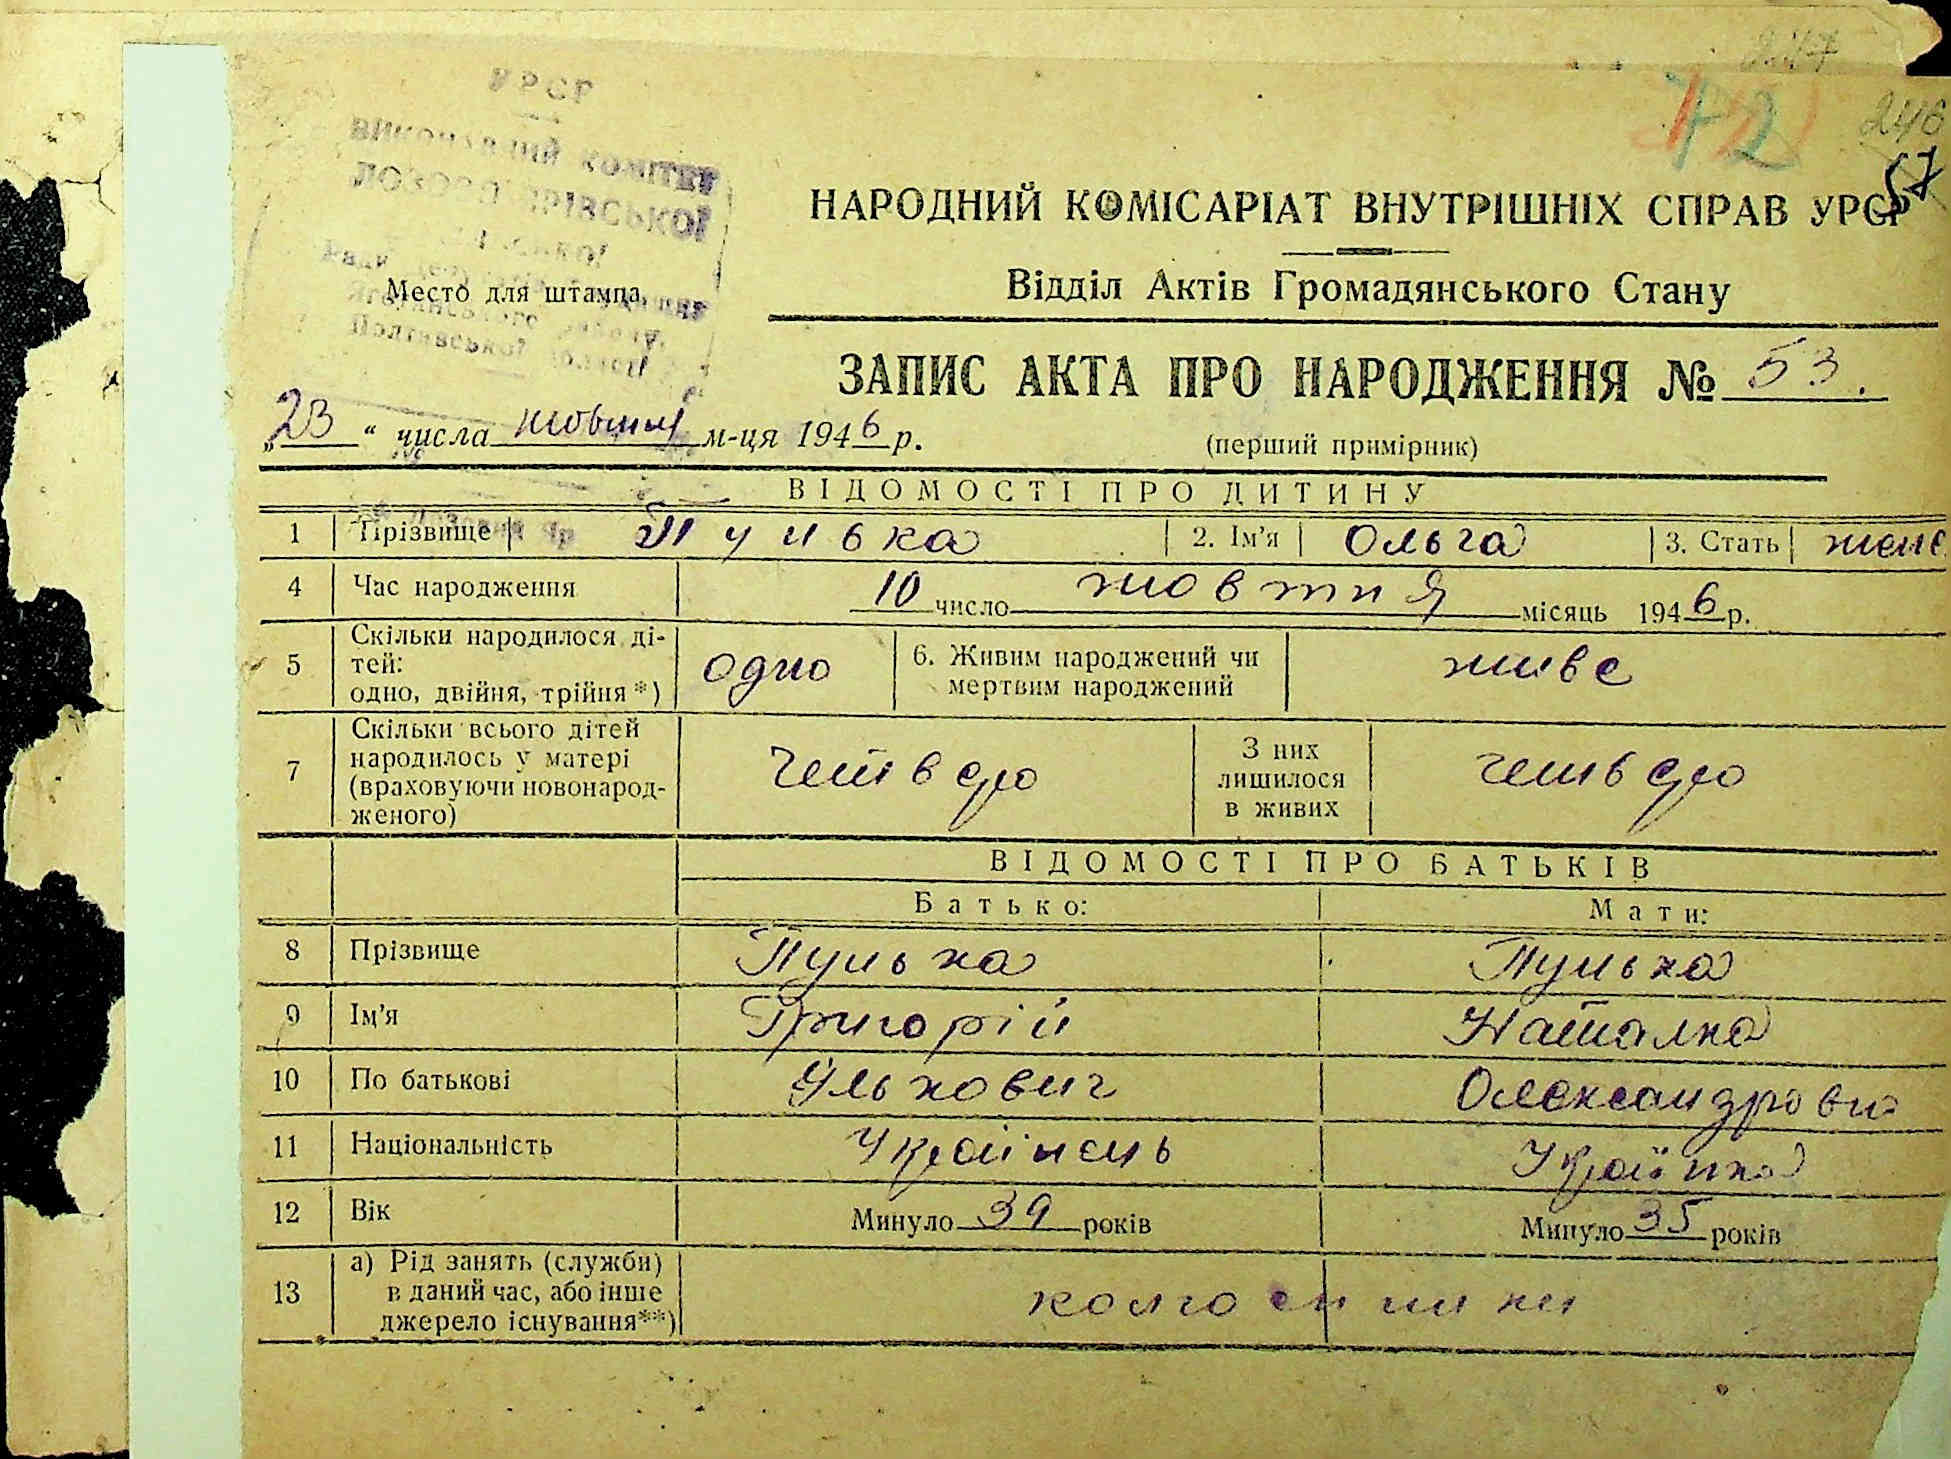 247
246
72
57
УРСР
ВИКОНАВЧИЙ КОМІТЕТ
НАРОДНИЙ КОМІСАРІАТ ВНУТРІШНІХ СПРАВ УРСР
Место для штампа
Полтавської області
Відділ Актів Громадянського Стану
ЗАПИС АКТА ПРО НАРОДЖЕННЯ № 53.
„23“ числа жовтня м-ця 1946 р.
(перший примірник)
ВІДОМОСТІ ПРО ДИТИНУ
1 Прізвище Пунька 2. Ім'я Ольга 3. Стать жен
4 Час народження 10 число жовтня місяць 1946 р.
5 Скільки народилося ді-
тей:
одно, двійня, трійня*) одно 6. Живим народжений чи
мертвим народжений живе
7 Скільки всього дітей
народилось у матері
(враховуючи новонарод-
женого) четверо З них
лишилося
в живих четверо
ВІДОМОСТІ ПРО БАТЬКІВ
Батько: Мати:
8 Прізвище Пунька Пунька
9 Ім'я Григорій Наталка
10 По батькові Улькович Олександровна
11 Національність Українець Українка
12 Вік Минуло 39 років Минуло 35 років
13 а) Рід занять (служби)
в даний час, або інше
джерело існування**) колгоспники